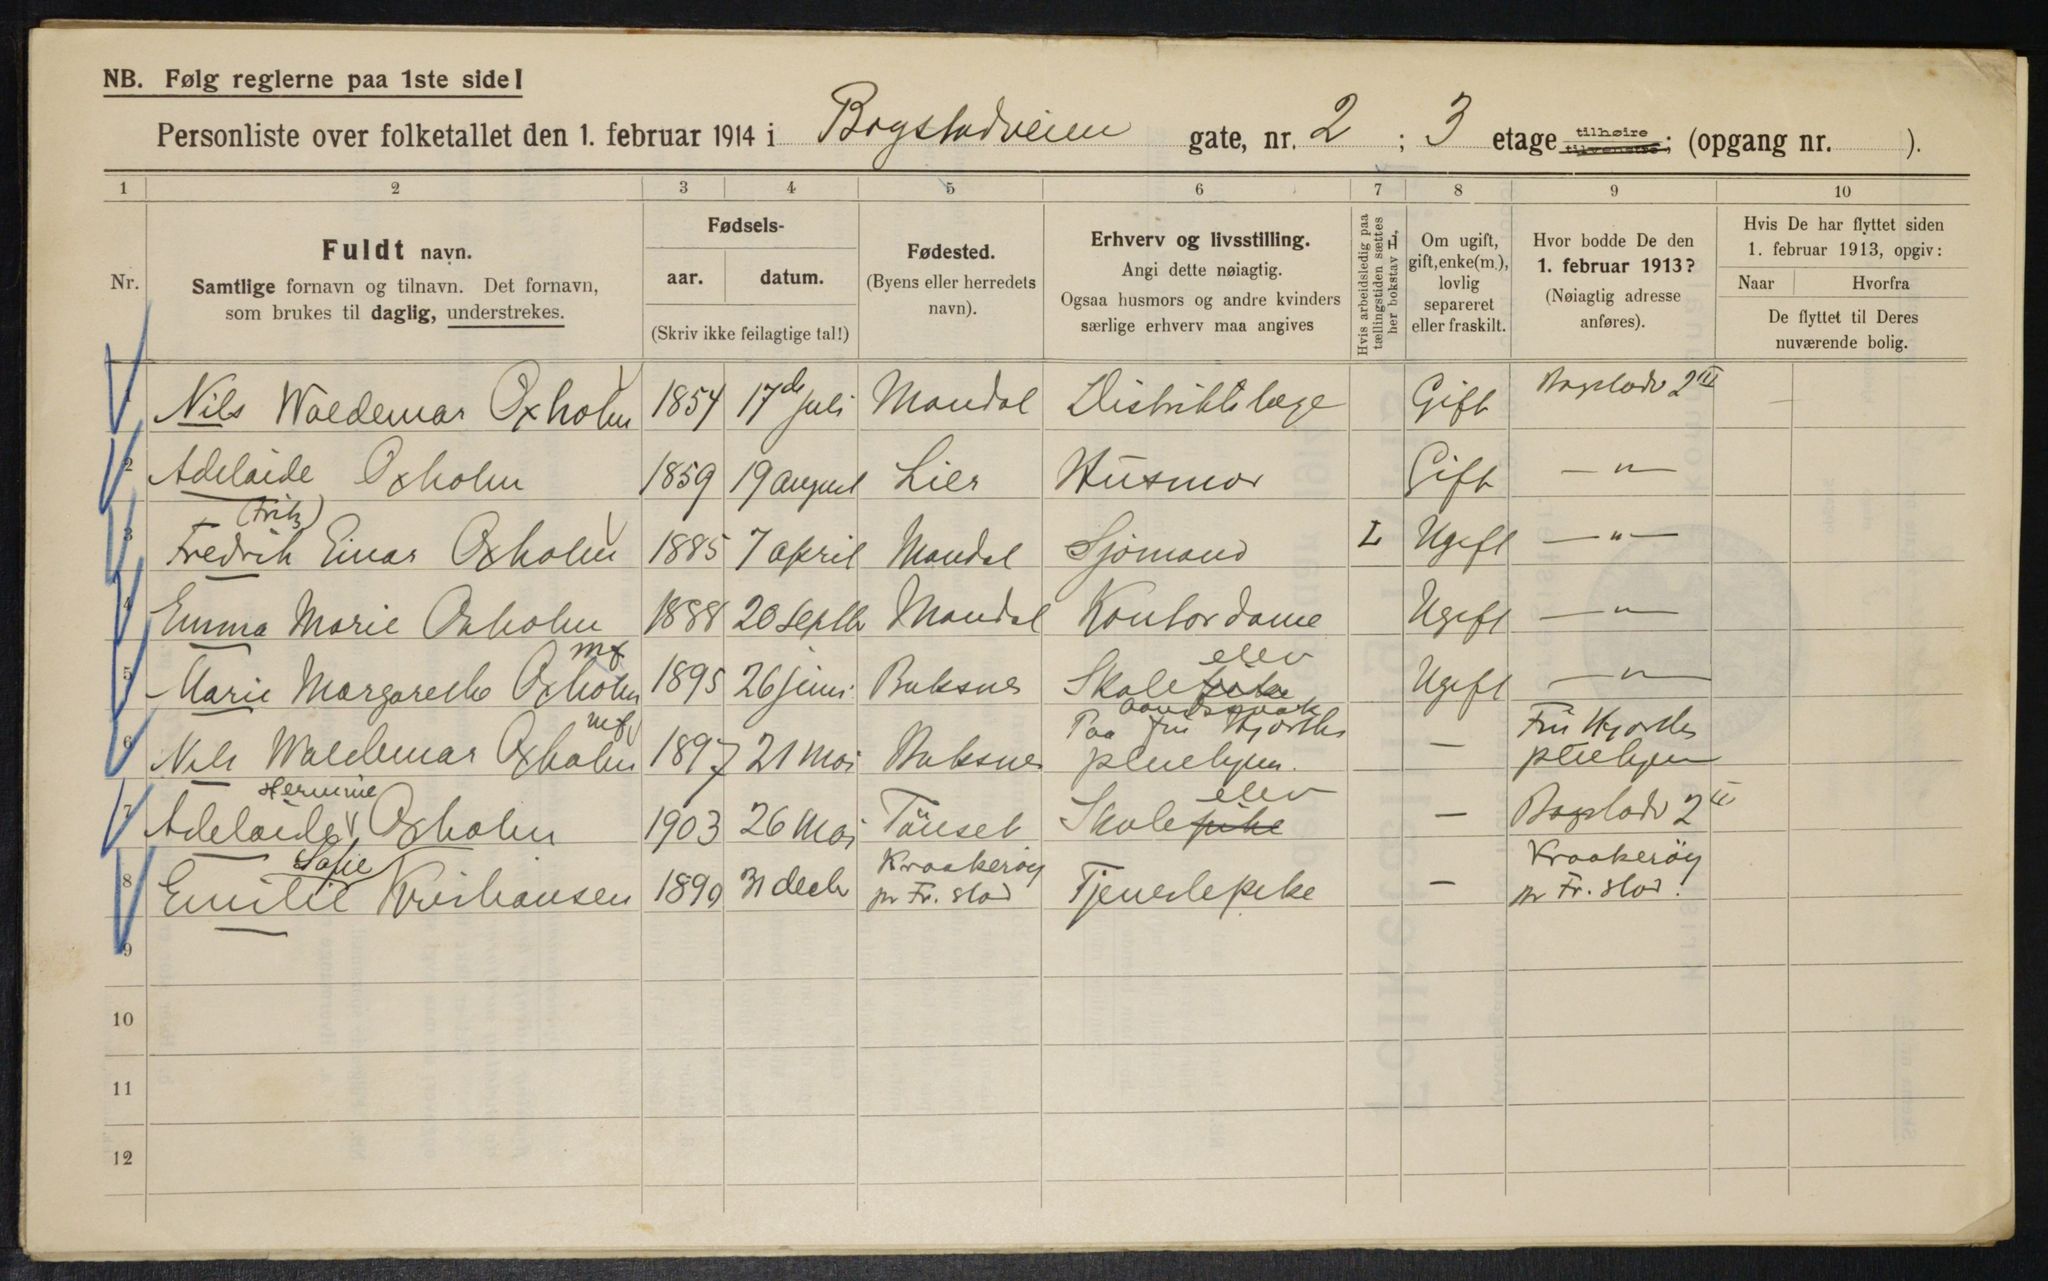 NB. Følg reglerne paa 1ste side!
Personliste over folketallet den 1. februar 1914 i Bogstadveien gate, nr. 2 ; 3 etage tilhøire tilvenstre; (opgang nr. ).
1 2 3 4 5 6 7 8 9 10
Nr.
Fuldt navn.
Samtlige fornavn og tilnavn. Det fornavn,
som brukes til daglig, understrekes.
Fødsels-
aar. datum.
(Skriv ikke feilagtige tal!)
Fødested.
(Byens eller herredets
navn).
Erhverv og livsstilling.
Angi dette nøiagtig.
Ogsaa husmors og andre kvinders
særlige erhverv maa angives
Hvis arbeidsledig paa
tællingstiden sættes
her bokstav L.
Om ugift,
gift, enke(m.),
lovlig
separeret
eller fraskilt.
Hvor bodde De den
1. februar 1913?
(Nøiagtig adresse
anføres).
Hvis De har flyttet siden
1. februar 1913, opgiv:
Naar Hvorfra
De flyttet til Deres
nuværende bolig.
1 Nils Waldemar Oxholm 1854 17de juli Mandal Distriktslæge Gift Bogstadv 2 III —
2 Adelaide Oxholm 1859 19 august Lier Husmor Gift — " —
(Fritz)
3 Fredrik Einar Oxholm 1885 7 april Mandal Sjømand L Ugift — " —
4 Emma Marie Oxholm 1888 20 septbr Mandal Kontordame Ugift — " —
mf elev
5 Marie Margarethe Oxholm 1895 26 juni Buksnes Skolepike Ugift — " —
aandssvak
mf Paa Frü Hjorths Frü Hjorths
6 Nils Waldemar Oxholm 1897 21 Mai Buksnes pleiehjem. — pleiehjem
Hermine elev
7 Adelaide Oxholm 1903 26 Mai Tönset Skolepike — Bogstadv 2 III
Sofie Kraakeröy Kraakeröy
8 Emilie Kristiansen 1890 31 decbr pr Fr. stad Tjenestepike — pr Fr. stad.
9
10
11
12